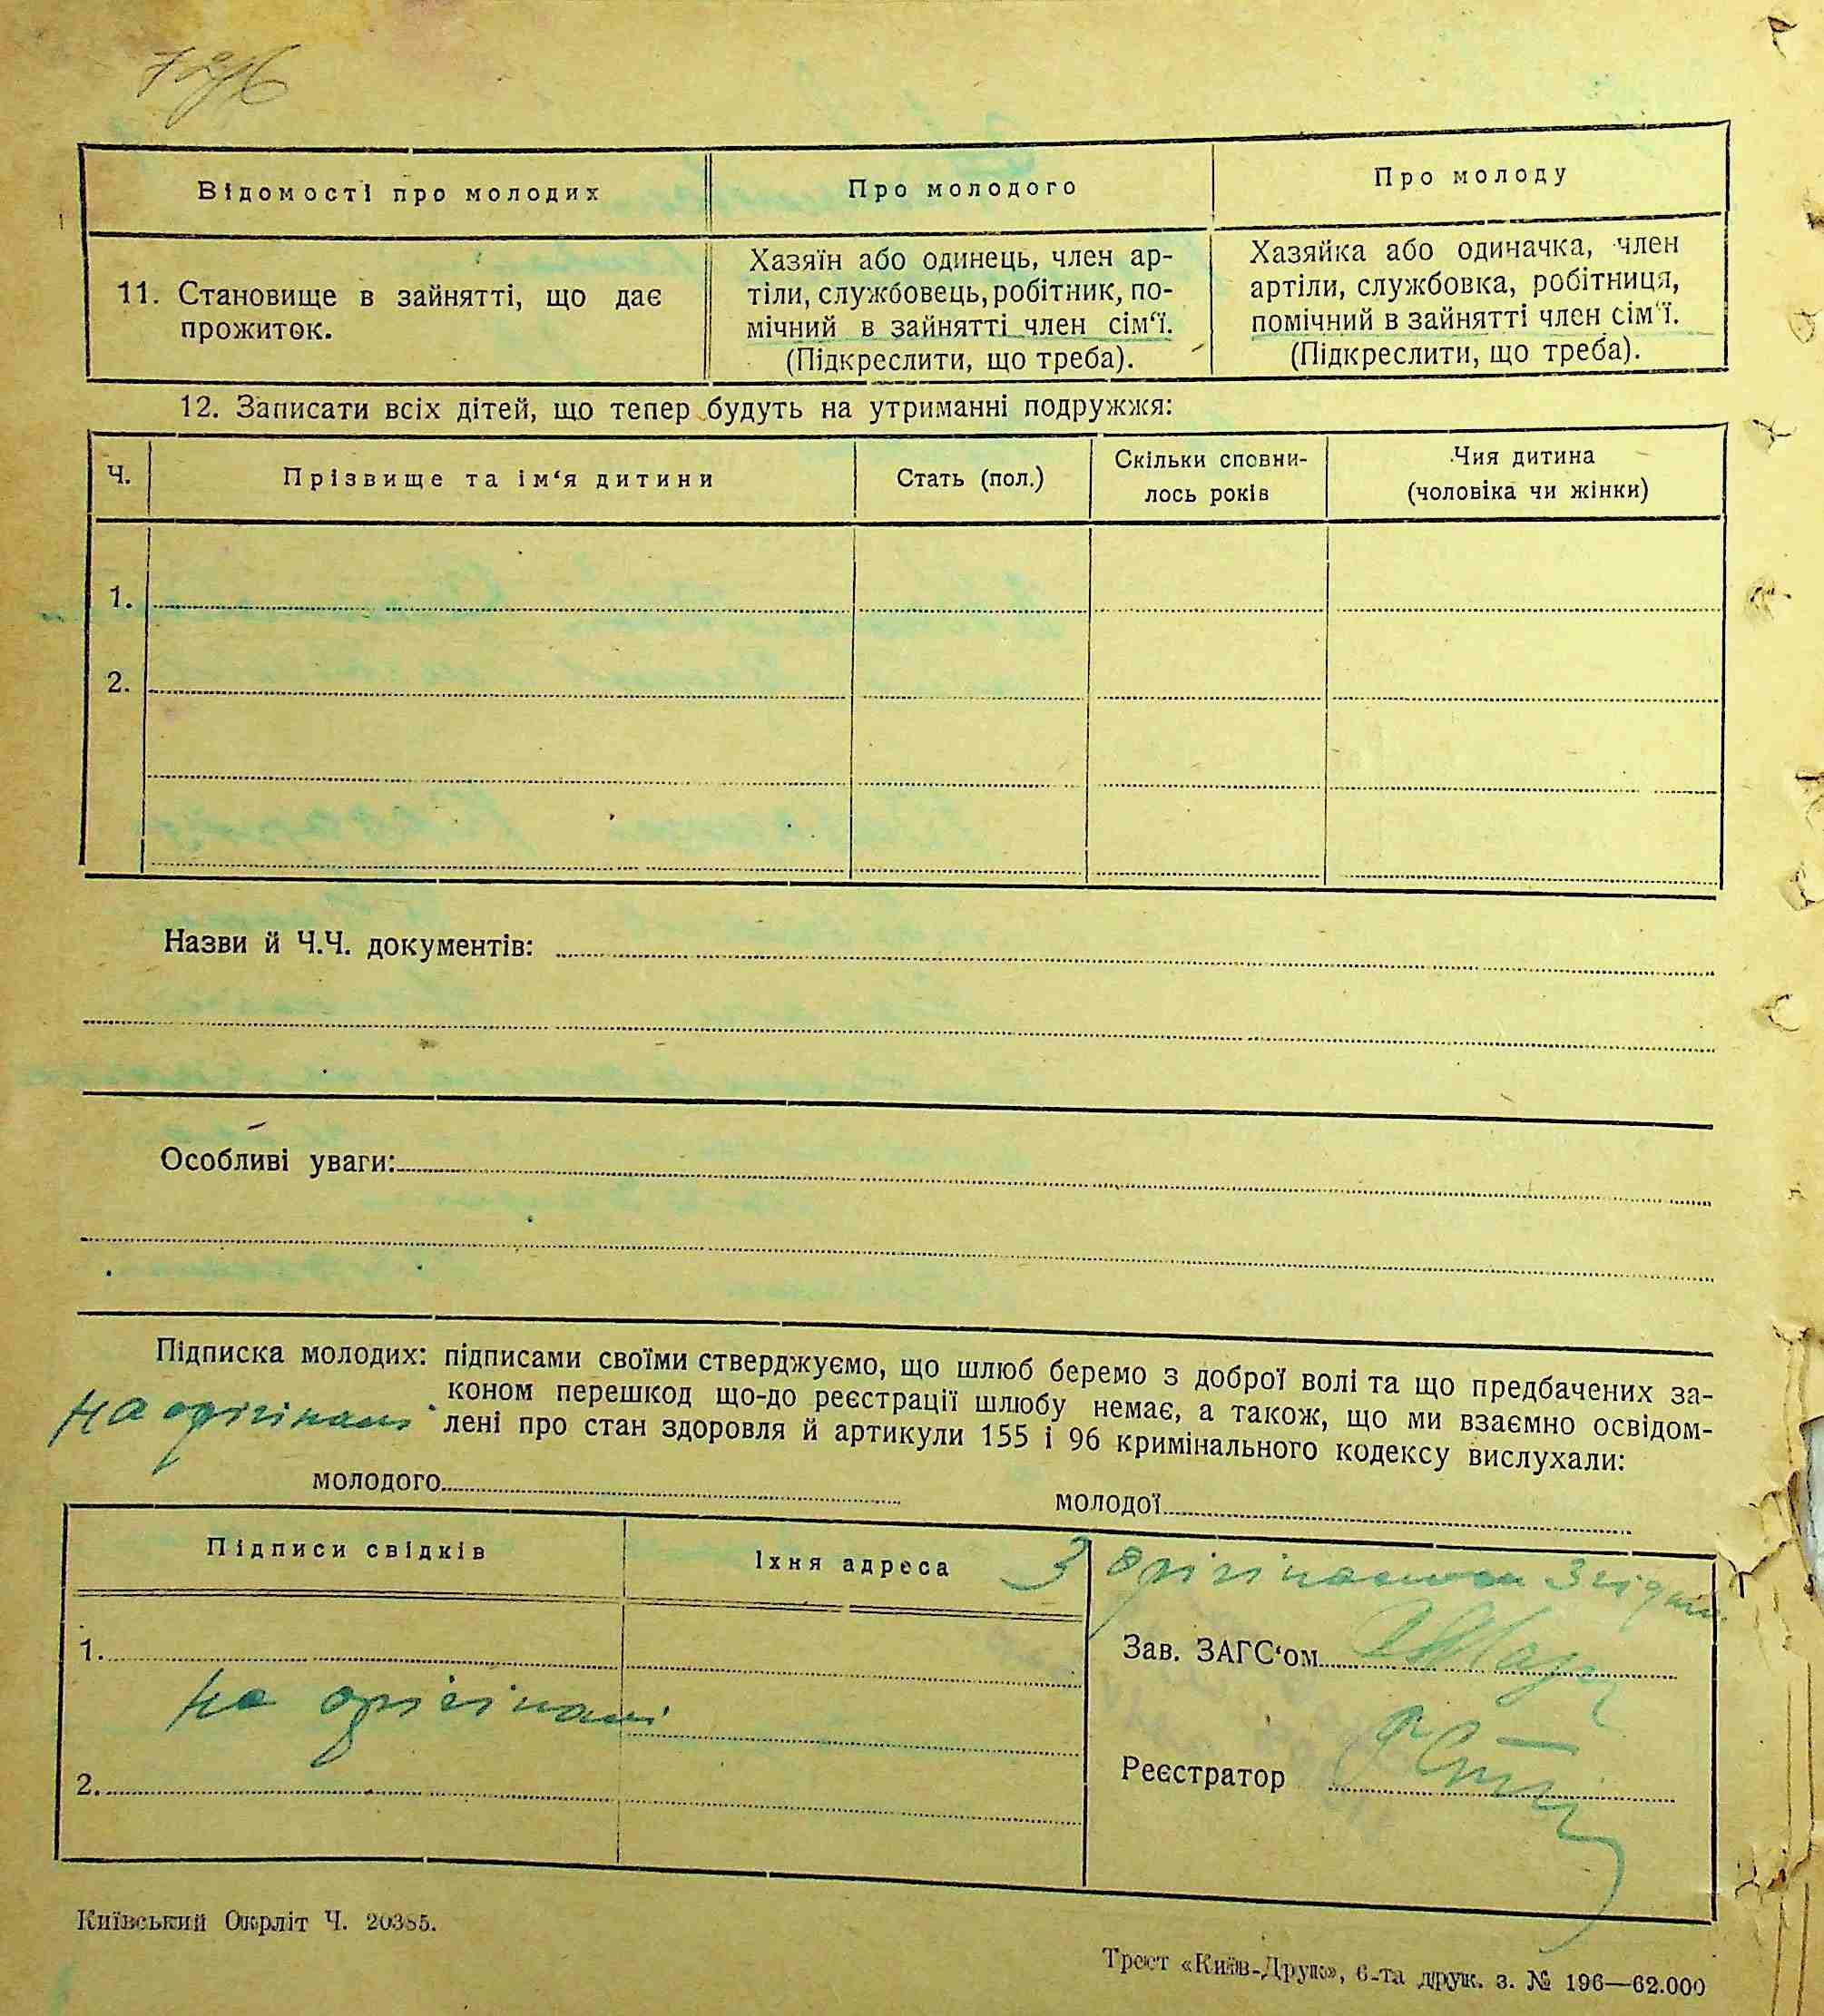 Відомості про молодих
Про молодого
Про молоду
11. Становище в зайнятті, що дає
прожиток.
Хазяїн або одинець, член ар-
тіли, службовець, робітник, по-
мічний в зайнятті член сім‘ї.
(Підкреслити, що треба).
Хазяйка або одиначка, член
артіли, службовка, робітниця,
помічний в зайнятті член сім‘ї.
(Підкреслити, що треба).
12. Записати всіх дітей, що тепер будуть на утриманні подружжя:
Ч.
Прізвище та ім‘я дитини
Стать (пол.)
Скільки сповни-
лось років
Чия дитина
(чоловіка чи жінки)
1.
2.
Назви й Ч.Ч. документів:
Особливі уваги:
Підписка молодих: підписами своїми стверджуємо, що шлюб беремо з доброї волі та що предбачених за-
коном перешкод що-до реєстрації шлюбу немає, а також, що ми взаємно освідом-
лені про стан здоровля й артикули 155 і 96 кримінального кодексу вислухали:
на орігіналі
молодого
молодої
Підписи свідків
Їхня адреса
З орігіналом згідно
1.
на орігіналі
2.
Зав. ЗАГС‘ом
Реєстратор
Київський Окрліт Ч. 20385.
Трест «Київ-Друк», 6-та друк. з. № 196—62.000